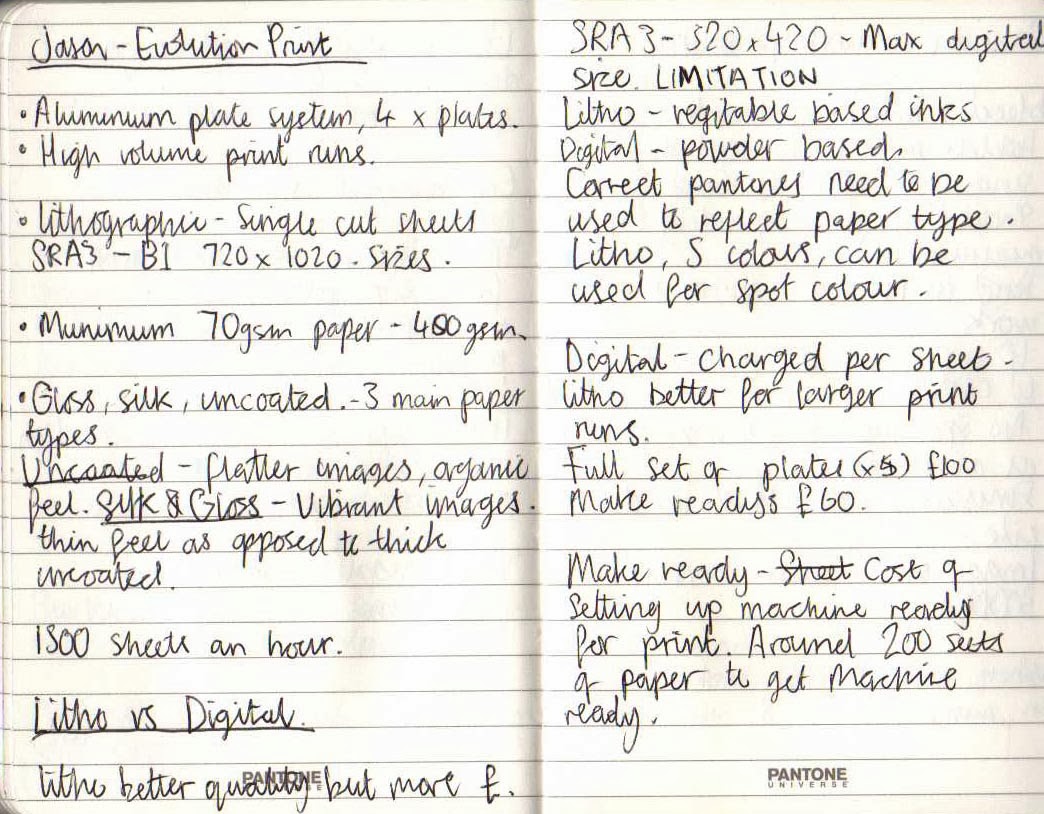 Jason - Evolution Print
• Aluminium plate system, 4 x plates.
• High volume print runs.
• Lithographic - Single cut sheets
SRA3 - B1 720 x 1020. Sizes.
• Munimum 70gsm paper - 400gsm.
• Gloss, silk, uncoated. - 3 main paper
types.
Uncoated - flatter images, organic
feel. Silk & Gloss - Vibrant images.
thin feel as opposed to thick
uncoated.
1500 sheets an hour.
Litho vs Digital.
litho better quality but more £.
PANTONE
SRA3 - 320 x 420 - Max digital
size. LIMITATION
Litho - vegitable based inks
Digital - powder based.
Correct pantones need to be
used to reflect paper type.
Litho, 5 colours, can be
used for spot colour.
Digital - charged per sheet -
litho better for larger print
runs.
Full set of plates (x5) £100
Make readys £60.
Make ready - Street Cost of
setting up machine ready
for print. Around 200 seets
of paper to get machine
ready.
PANTONE
UNIVERSE